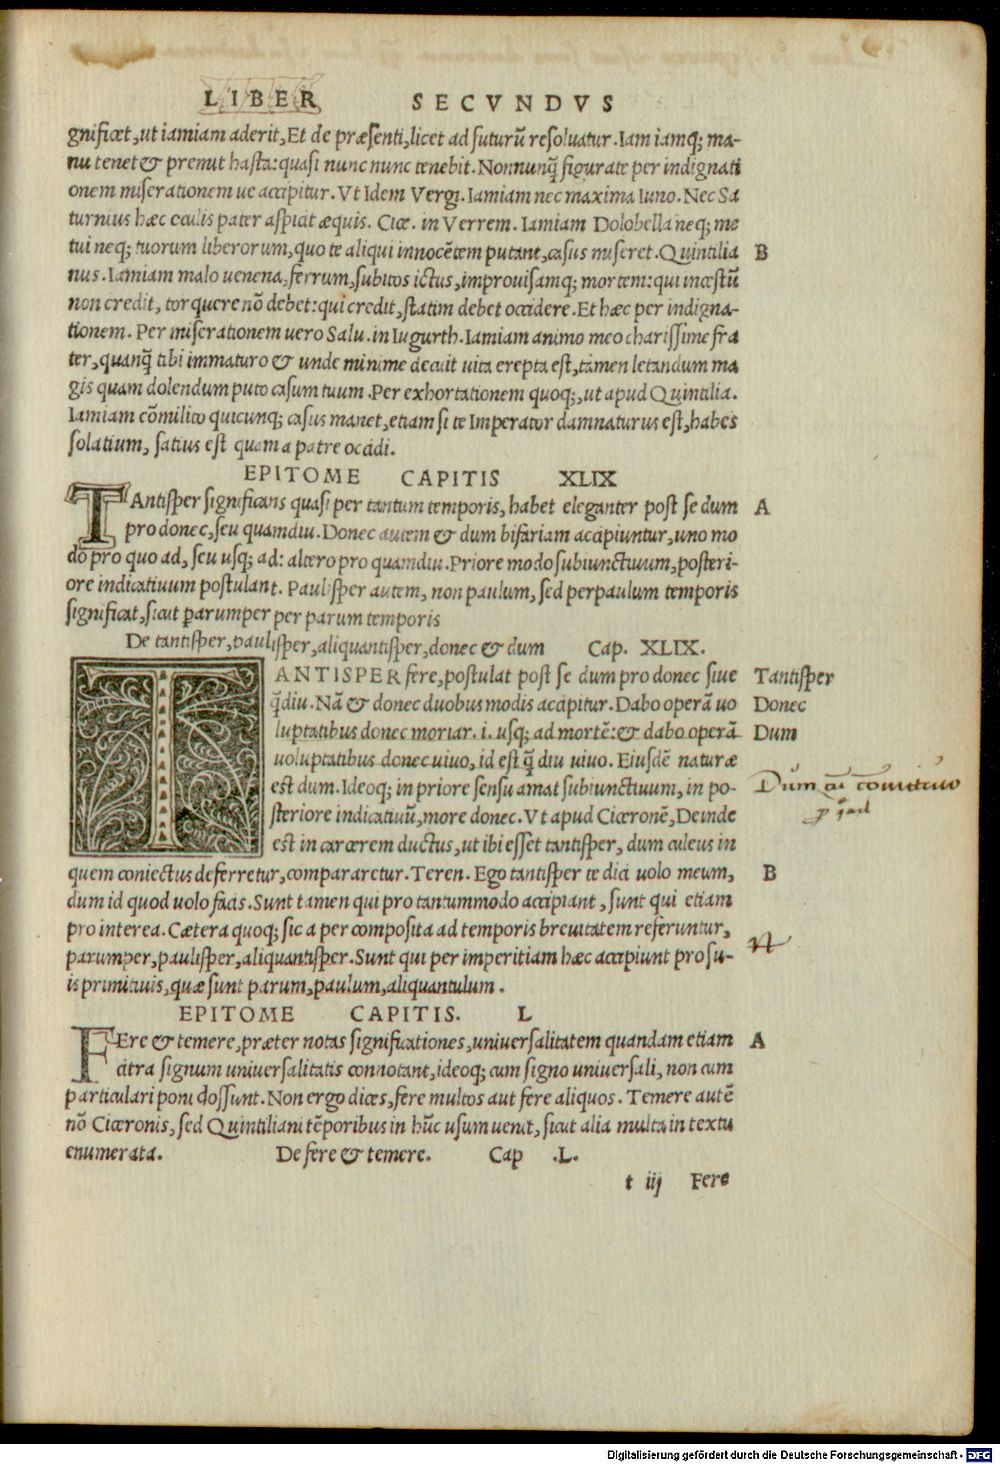 LIBER SECVNDVS
gnificet, ut iamiam aderit, Et de præsenti, licet ad futurū resoluatur. Iam iamq; ma-
nu tenet & premit hasta: quasi nunc nunc tenebit. Nonnunq̃ figurate per indignati
onem miserationem ue accipitur. Vt Idem Vergi. Iamiam nec maxima Iuno. Nec Sa
turnius hæc oculis pater aspicit æquis. Cice. in Verrem. Iamiam Dolobella neq; me
tui neq; tuorum liberorum, quo te aliqui innocētem putant, casus miseret. Quintilia B
nus. Iamiam malo uenena, ferrum, subitos ictus, improuisamq; mortem: qui incestū
non credit, torquere nō debet: qui credit, statim debet occidere. Et hæc per indigna-
tionem. Per miserationem uero Salu. in Iugurth. Iamiam animo meo charissime fra
ter, quanq̃ tibi immaturo & unde minime decuit uita erepta est, tamen letandum ma
gis quam dolendum puto casum tuum. Per exhortationem quoq;, ut apud Quintilia.
Iamiam cōmilito quicunq; casus manet, etiam si te Imperator damnaturus est, habes
solatium, satius est quam a patre occidi.
EPITOME CAPITIS XLIX
TAntisper significans quasi per tantum temporis, habet eleganter post se dum A
pro donec, seu quamdiu. Donec autem & dum bifariam accipiuntur, uno mo
do pro quo ad, seu usq; ad: altero pro quamdiu. Priore modo subiunctiuum, posteri-
ore indicatiuum postulant. Paulisper autem, non paulum, sed perpaulum temporis
significat, sicut parumper per parum temporis
De tantisper, paulisper, aliquantisper, donec & dum Cap. XLIX.
TANTISPER fere, postulat post se dum pro donec siue Tantisper
q̃diu. Nā & donec duobus modis accipitur. Dabo operā uo Donec
luptatibus donec moriar. i. usq; ad mortē: & dabo operā Dum
uoluptatibus donec uiuo, id est q̃ diu uiuo. Eiusdē naturæ
est dum. Ideoq; in priore sensu amat subiunctiuum, in po- Dum
steriore indicatiuū, more donec. Vt apud Ciceronē, Deinde
est in carcerem ductus, ut ibi esset tantisper, dum culeus in
quem coniectus deferretur, compararetur. Teren. Ego tantisper te dici uolo meum, B
dum id quod uolo facis. Sunt tamen qui pro tantummodo accipiant, sunt qui etiam
pro interea. Cætera quoq; sic a per composita ad temporis breuitatem referuntur,
parumper, paulisper, aliquantisper. Sunt qui per imperitiam hæc accipiunt pro su-
is primitiuis, quæ sunt parum, paulum, aliquantulum.
EPITOME CAPITIS. L
FEre & temere, præter notas significationes, uniuersalitatem quandam etiam A
citra signum uniuersalitatis connotant, ideoq; cum signo uniuersali, non cum
particulari poni possunt. Non ergo dices, fere multos aut fere aliquos. Temere autē
nō Ciceronis, sed Quintiliani tēporibus in hūc usum uenit, sicut alia multa in textu
enumerata. De fere & temere. Cap .L.
t iij Fere
Digitalisierung gefördert durch die Deutsche Forschungsgemeinschaft - DFG